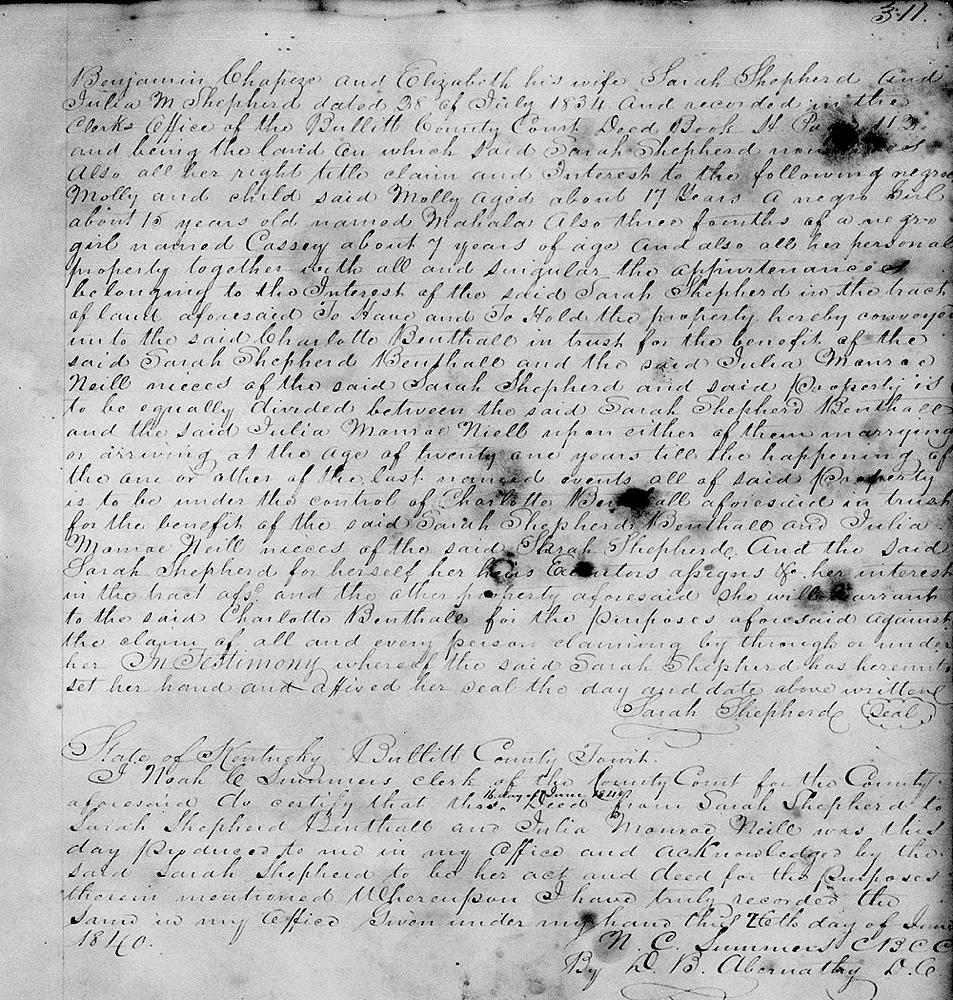 311.
Benjamin Chapeze and Elizabeth his wife Sarah Shepherd and
Julia M Shepherd dated 28 of July 1834 and recorded in the
Clerks Office of the Bullitt County Court Deed Book H
and being the land on which said Sarah Shepherd now
Also all her right title claim and Interest to the following negroe
Molly and child said Molly aged about 17 Years A negro Girl
about 15 years old named Mahala Also three fourths of a negro
girl named Cassey about 7 years of age and also all her personal
property together with all and singular the appurtenances
belonging to the Interest of the said Sarah Shepherd in the tract
of land aforesaid To Have and To Hold the property hereby conveyed
unto the said Charlotte Benthall in trust for the benefit of the
said Sarah Shepherd Benthall and the said Julia Monroe
Neill nieces of the said Sarah Shepherd and said Property is
to be equally divided between the said Sarah Shepherd Benthall
and the said Julia Monroe Niell upon either of them marrying
or arriving at the age of twenty one years till the happening of
the one or other of the last named events all of said Property
is to be under the control of Charlotte Benthall aforesaid in trust
for the benefit of the said Sarah Shepherd Benthall and Julia
Monroe Neill nieces of the said Sarah Shepherd. And the said
Sarah Shepherd for herself her heirs Executors assigns &c. her interest
in the tract afsd and the other property aforesaid she will warrant
to the said Charlotte Benthall for the purposes aforesaid against
the claim of all and every person claiming by through or under
her In Testimony whereof the said Sarah Shepherd has hereunto
set her hand and affixed her seal the day and date above written
Sarah Shepherd Seal
State of Kentucky Bullitt County Court.
I Noah C Summers clerk of the County Court for the County
aforesaid do certify that this Deed from Sarah Shepherd to
Sarah Shepherd Benthall and Julia Monroe Neill was this
day produced to me in my office and acknowledged by the
said Sarah Shepherd to be her act and deed for the purposes
therein mentioned Whereupon I have truly recorded the
same in my Office Given under my hand this 26th day of June
1840.
N. C. Summers C B C C
By D. B. Abernathy D. C.